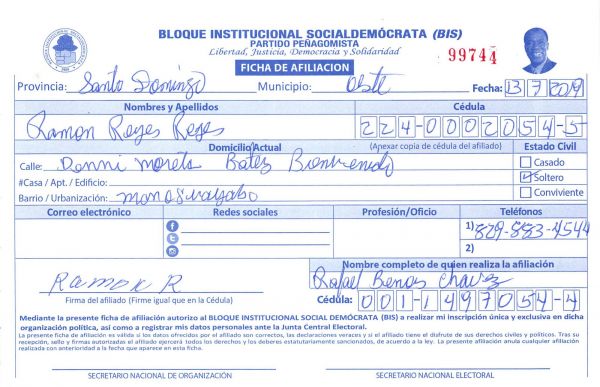 BLOQUE INSTITUCIONAL SOCIALDEMÓCRATA (BIS)
PARTIDO PEÑAGOMISTA
Libertad, Justicia, Democracia y Solidaridad
99744
FICHA DE AFILIACION
Provincia: Santo Domingo Municipio: Oeste Fecha: 13 7 2019
Nombres y Apellidos Cédula
Ramon Reyes Reyes 224-0002054-5
Domicilio Actual (Anexar copia de cédula del afiliado) Estado Civil
Calle: Bienvenido
Casado
#Casa / Apt. / Edificio:
Soltero
Barrio / Urbanización: manoguayabo
Conviviente
Correo electrónico Redes sociales Profesión/Oficio Teléfonos
1) 829-883-4544
2)
Nombre completo de quien realiza la afiliación
Ramon R Rafael Chavez
Firma del afiliado (Firme igual que en la Cédula)
Cédula: 001-1497054-4
Mediante la presente ficha de afiliación autorizo al BLOQUE INSTITUCIONAL SOCIAL DEMÓCRATA (BIS) a realizar mi inscripción única y exclusiva en dicha
organización política, así como a registrar mis datos personales ante la Junta Central Electoral.
La presente ficha de afiliación es válida si los datos ofrecidos por el afiliado son correctos, las declaraciones veraces y si el afiliado tiene el disfrute de sus derechos civiles y políticos. Tras su
recepción, sello y firmas autorizadas el afiliado ejercerá todos los derechos y los deberes estatutariamente sancionados, de acuerdo a la ley. La presente afiliación anula cualquier afiliación
realizada con anterioridad a la fecha que aparece en esta ficha.
SECRETARIO NACIONAL DE ORGANIZACIÓN SECRETARIO NACIONAL ELECTORAL